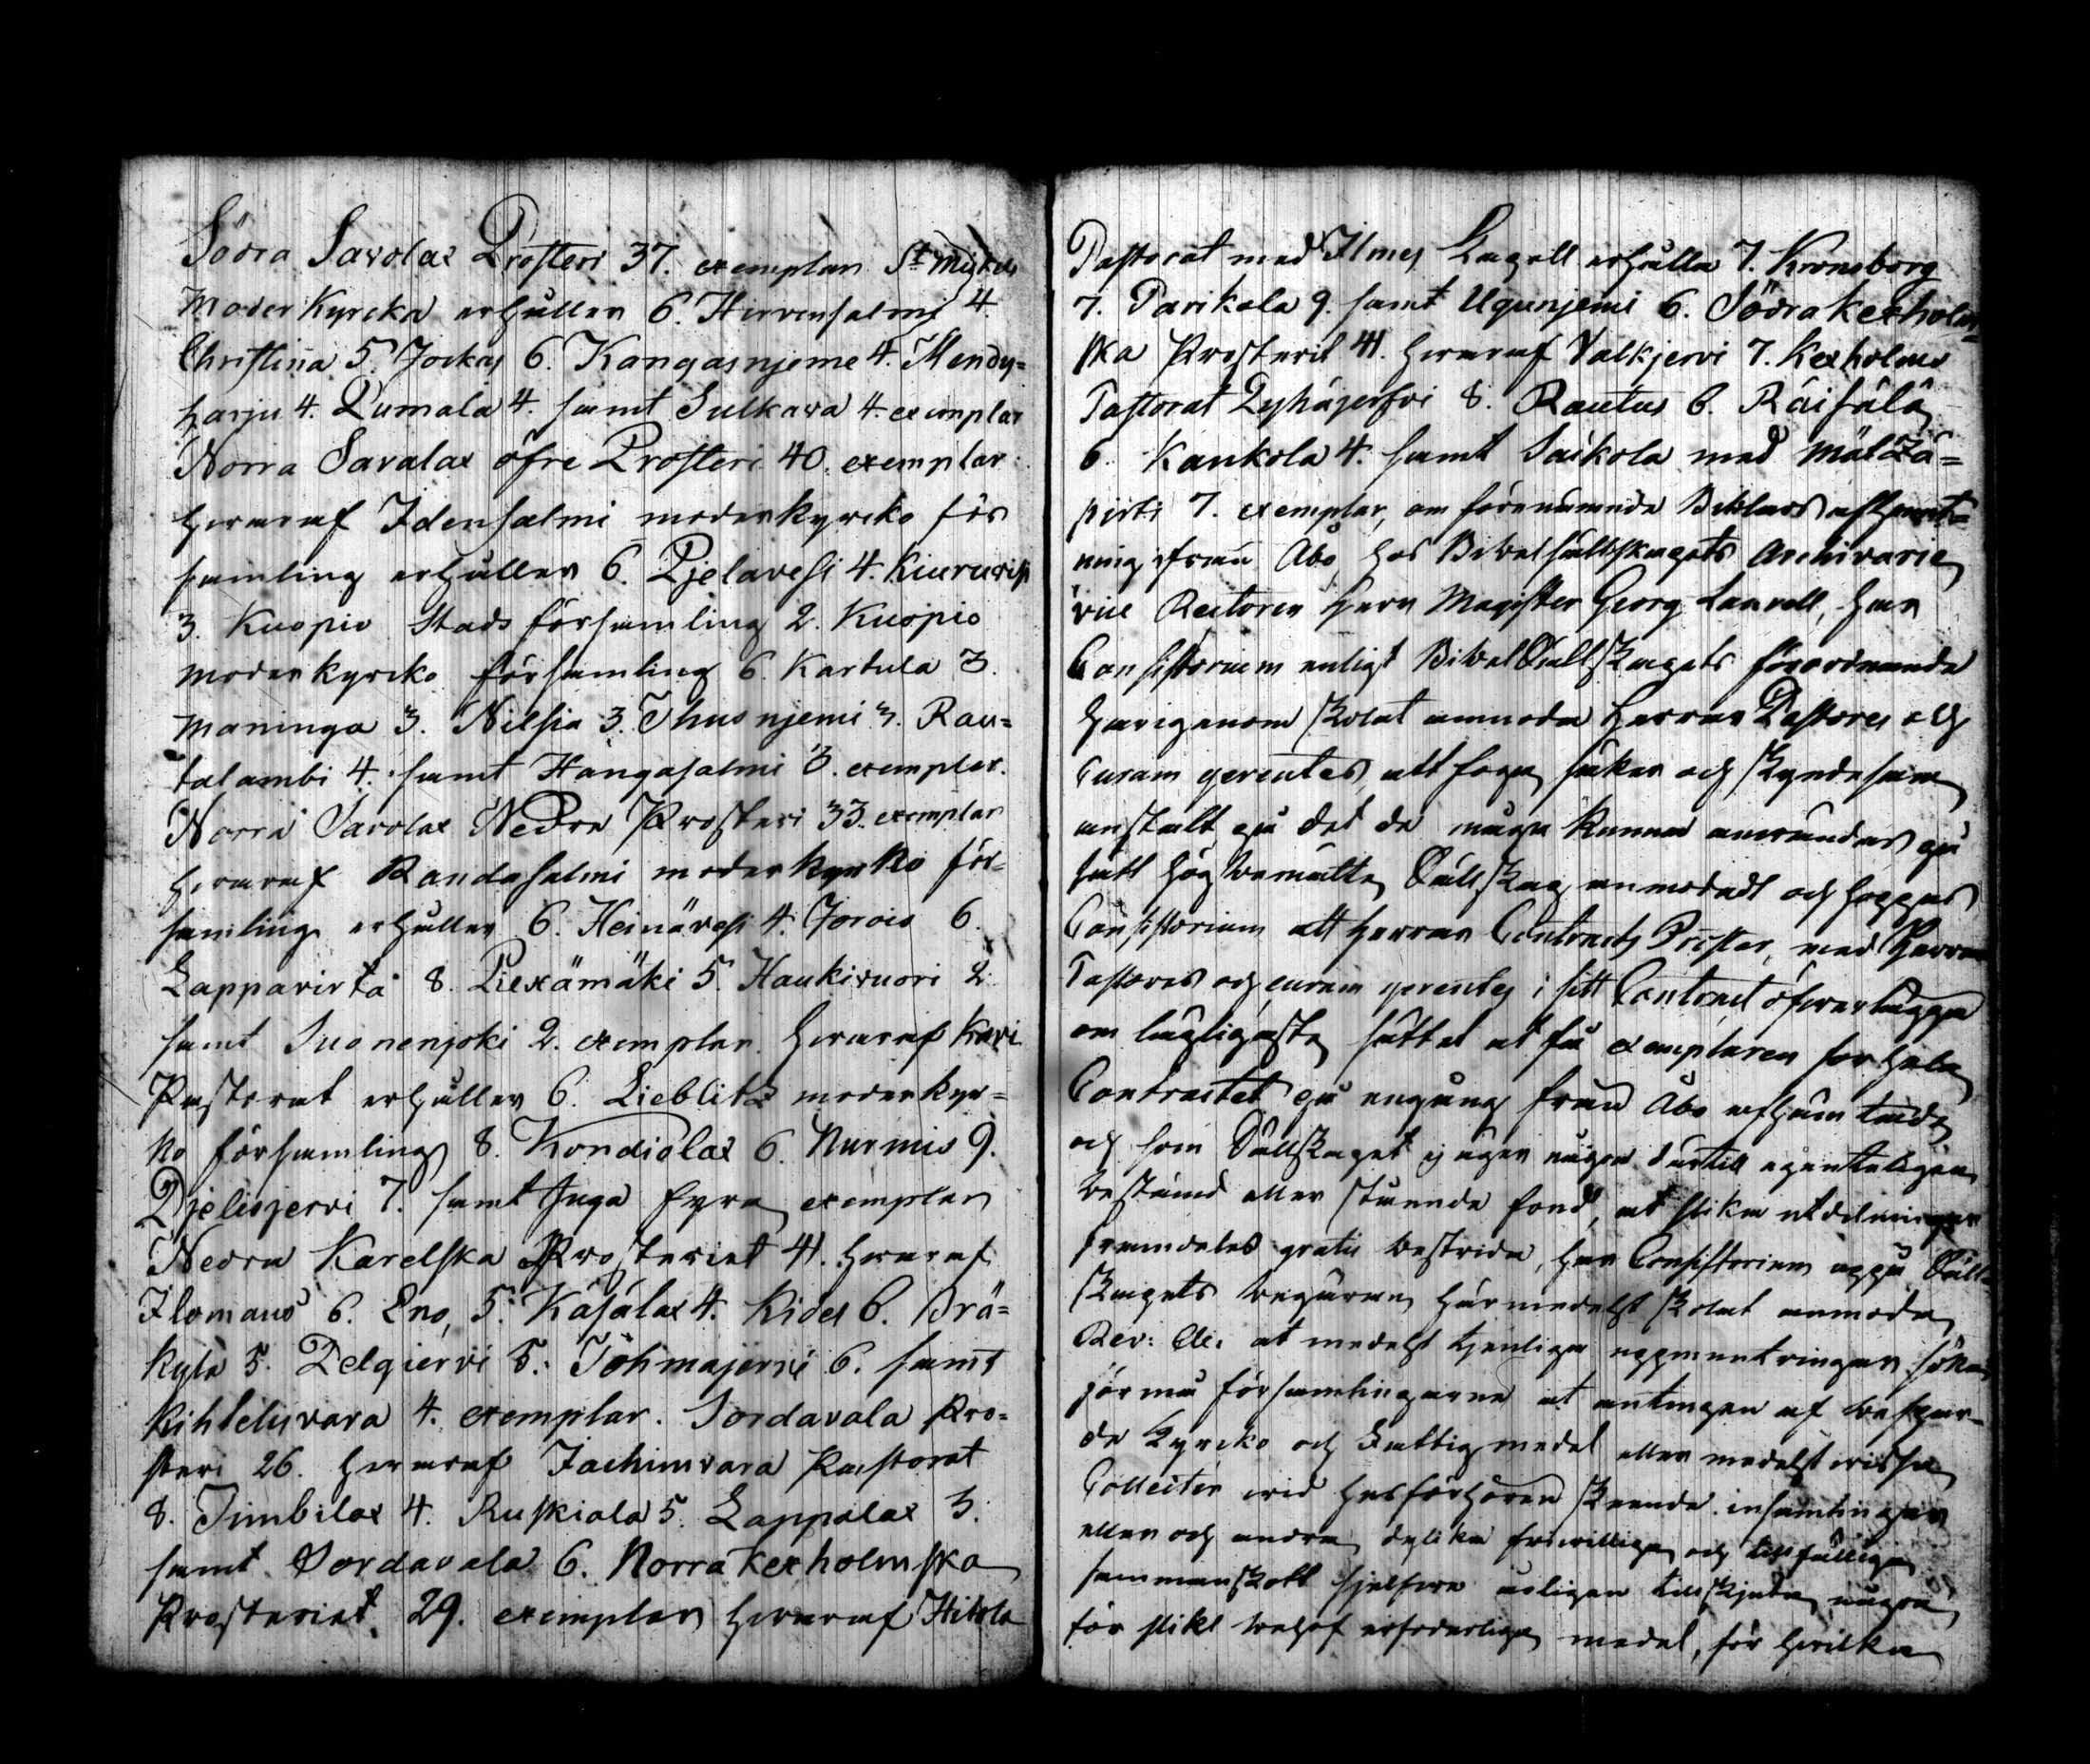 Södra Savolax Prosteri 37. exemplar St Mickels
Moder Kyrcka erhåller 6. Hirvensalmi 4.
Christina 5. Jockas 6. Kangasnjeme 4. Mendy=
harju 4. Pumala 4. samt Sulkava 4. exemplar
Norra Savalax öfre Prosteri 40. exemplar
hvaraf Idensalmi moderkyrcko för
samling erhåller 6. Pjelavesi 4. Kiuruvesi
3. Kuopio Stads församling 2. Kuopio
moderkyrcko församling 6. Kartula 3.
Maninga 3. Nilsia 3. Thusnjemi 3. Rau=
talambi 4. samt Hangasalmi 3. exemplar.
Norra Savolax Nedre Prosteri 33. exemplar
hvaraf Randasalmi moderkyrko för-
samling erhåller 6. Heinävesi 4. Jorois 6.
Lappavirta 8. Piexämäki 5. Haukivuori 2
samt Suonenjoki 2. exemplar. hvaraf Kavi
Pastorat erhåller 6. Lieblitz moderkyr=
ko församling 8. Kondiolax 6. Nurmis 9.
Pjelisjervi 7. samt Juga fyra exemplar
Nedra Karelska Prosteriet 41. hvaraf
Ilomans 6. Eno, 5. Kåsålax 4. Kides 6. Brä=
kylä 5. Pelgjervi 5. Tohmajervi 6. samt
Kihtelysvara 4. exemplar. Sordavala Pro=
steri 26. hvaraf Jachimvara Pastorat
8. Imbilax 4. Ruskiala 5. Lappalax 3.
samt Sordavala 6. Norra Kexholmska
Prosteriet. 29. exemplar hvaraf Hitola
Pastorat med Ilmes Kapell erhålla 7. Kronoborg
7. Parikala 9. samt Ugunjemi 6. Södra Kexholm=
ska Prosteriet 41. hvaraf Valkjervi 7. Kexholms
Pastorat Pyhäjerfvi 8. Rautus 6. Räisälä
6. Kaukola 4. samt Saikola med Mätzä=
pirti 7. exemplar, om förenämnde Biblars afhemt=
ning från Åbo, hos Bibelsällskapets Archivarie
vice Rectoren Herr Magister Georg har
Consistorium enligt Bibel Sällskapets förordnande
härigenom skolat anmoda Herrar Pastores och
Curam gerentes, att foga säker och skyndesam
anstalt på det de måga kunna användas på
sätt högbemälte Sällskap anmodadt och hoppas
Consistorium att Herrar Contracts Proster, med Herrar
Pastores och curam gerentes i sitt Contract öfverlägga
om lägligaste sättet at få exemplaren för hela
Contractet på engång från Åbo afhämtade
och som Sällskapet ej äger någon därtill egenteligen
bestämd eller stående fond, at slika utdelningar
framdeles gratis bestrida, har Consistorium uppå Säll=
skapets begäran härmedelst skolat anmoda
Rev: Cle: at medelst tjenliga uppmuntringar söka
förmå församlingarne at antingen af bespar=
de Kyrcko och Fattigmedel eller medelst vissa
Collecter vid husförhören skeende insamlingar
eller och andra dylika frivilliga och tillfälliga
sammanskott sjelfve årligen tillskjuta någre
för slikt behof erforderliga medel, för hvilka